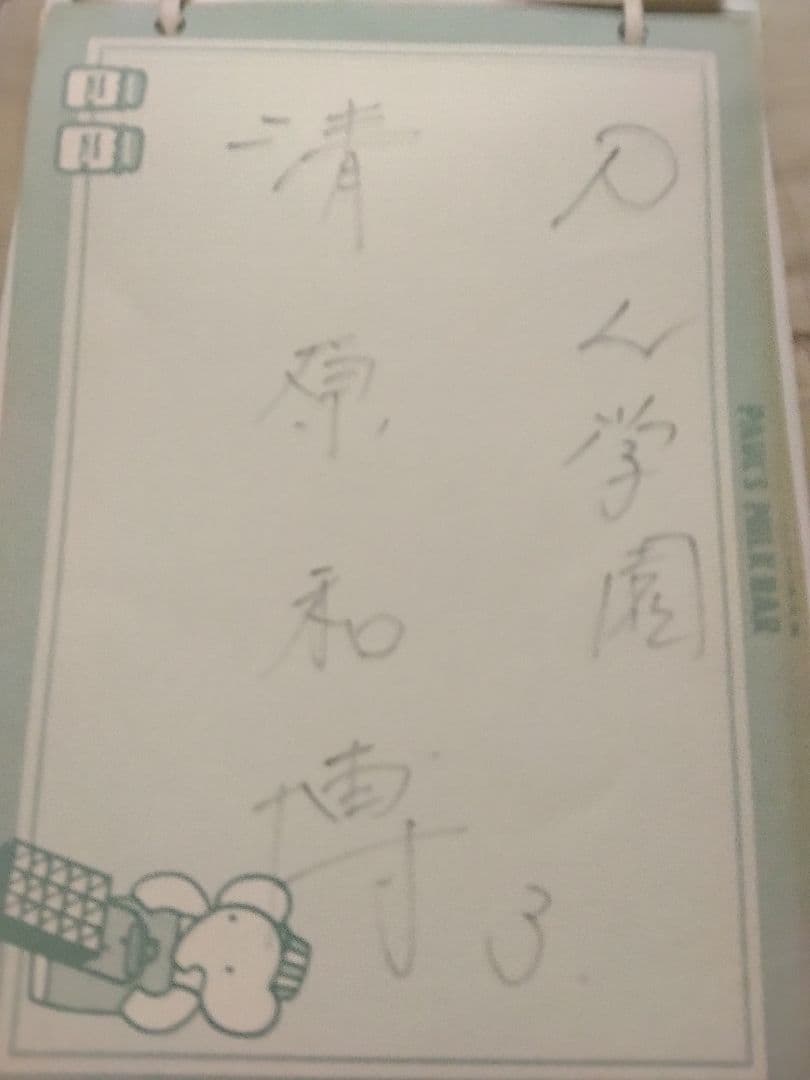 PL学園
清原和博
3
MILK BAR